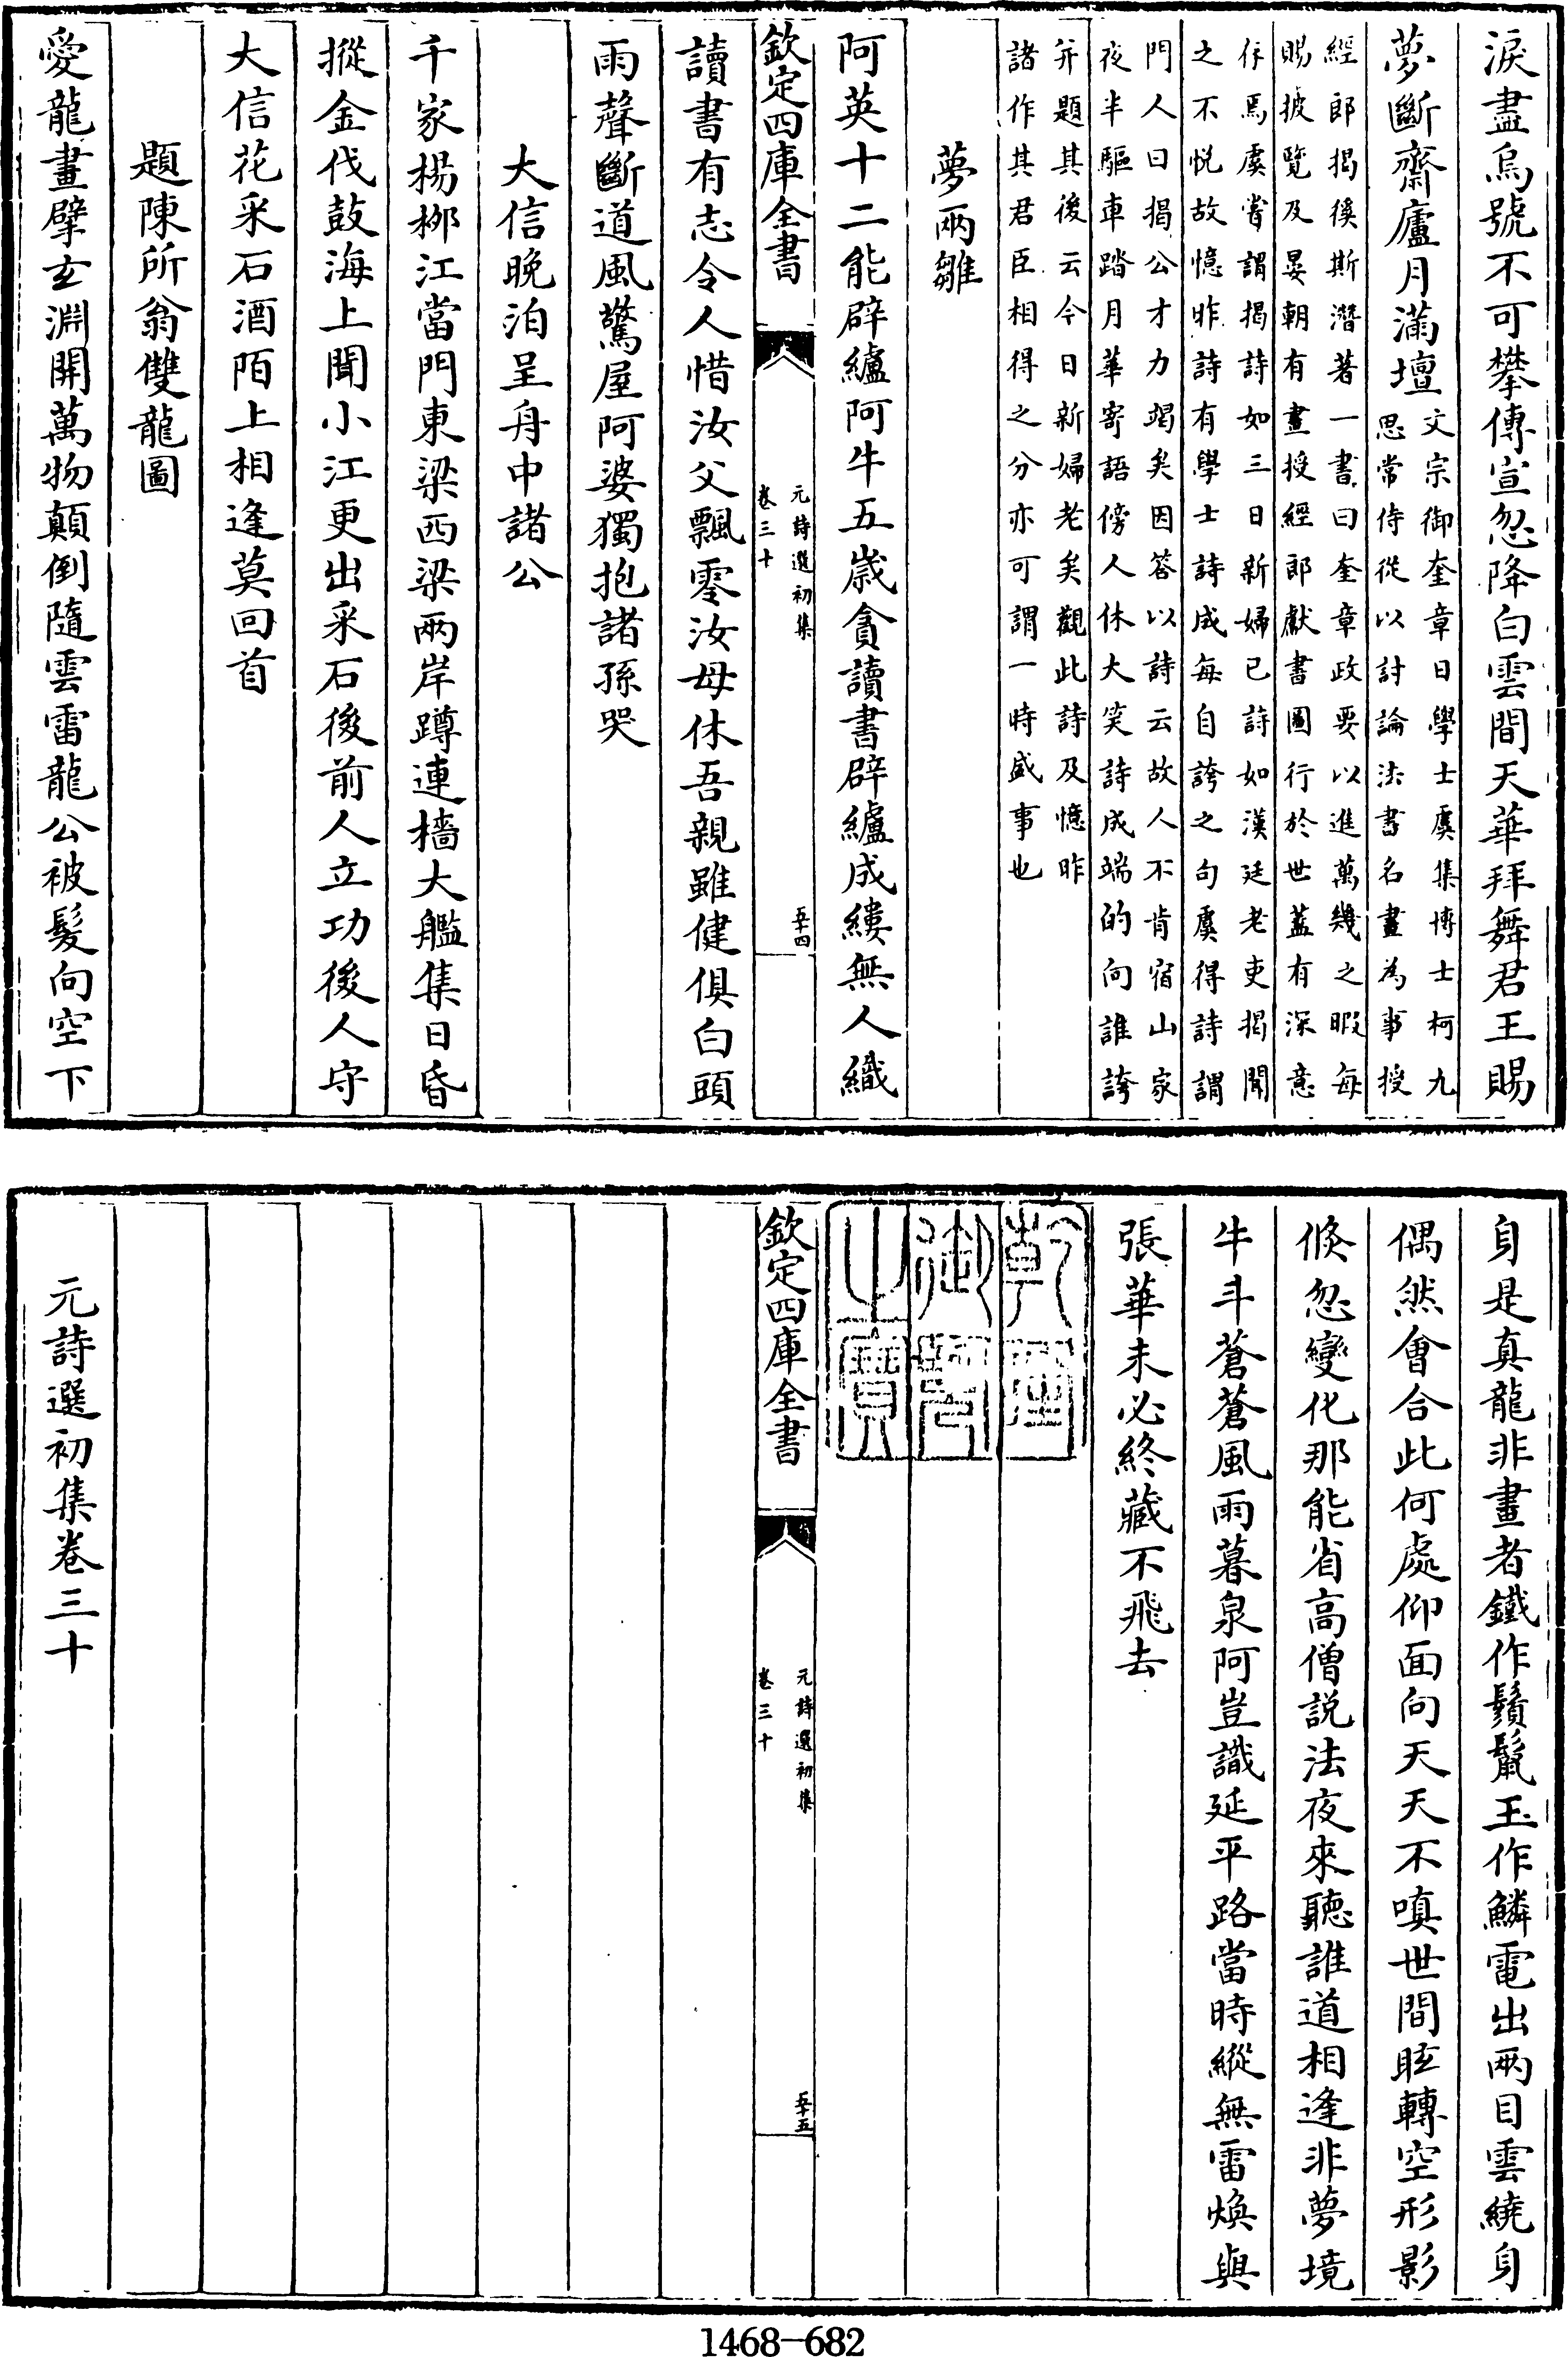 淚盡烏號不可攀傳宣忽降白雲間天華拜舞君王賜
夢斷齋廬月滿壇
文宗御奎章日學士虞集博士柯九
思常侍從以討論法書名畫為事授
經郎揭徯斯潛著一書曰奎章政要以進萬幾之暇每
賜披覽及晏朝有畫授經郎獻書圖行於世蓋有深意
存焉虞嘗謂揭詩如三日新婦已詩如漢廷老吏揭聞
之不悅故憶昨詩有學士詩成每自誇之句虞得詩謂
門人曰揭公才力竭矣因答以詩云故人不肯宿山家
夜半驅車踏月華寄語傍人休大笑詩成端的向誰誇
并題其後云今日新婦老矣觀此詩及憶昨
諸作其君臣相得之分亦可謂一時盛事也
夢兩雛
阿英十二能辟纑阿牛五歲貪讀書辟纑成縷無人織
欽定四庫全書
元詩選初集
卷三十
五十四
讀書有志令人惜汝父飄零汝母休吾親雖健俱白頭
雨聲斷道風驚屋阿婆獨抱諸孫哭
大信晚泊呈舟中諸公
千家楊柳江當門東梁西梁兩岸蹲連檣大艦集日昏
摐金伐鼓海上聞小江更出采石後前人立功後人守
大信花采石酒陌上相逢莫回首
題陳所翁雙龍圖
愛龍畫擘玄淵開萬物顛倒隨雲雷龍公被髮向空下
身是真龍非畫者鐵作鬚鬣玉作鱗電出兩目雲繞身
偶然會合此何處仰面向天天不嗔世間眩轉空形影
倏忽變化那能省高僧說法夜來聽誰道相逢非夢境
牛斗蒼蒼風雨暮泉阿豈識延平路當時縱無雷煥與
張華未必終藏不飛去
乾隆
御覽
之寶
欽定四庫全書
元詩選初集
卷三十
五十五
元詩選初集卷三十
1468-682